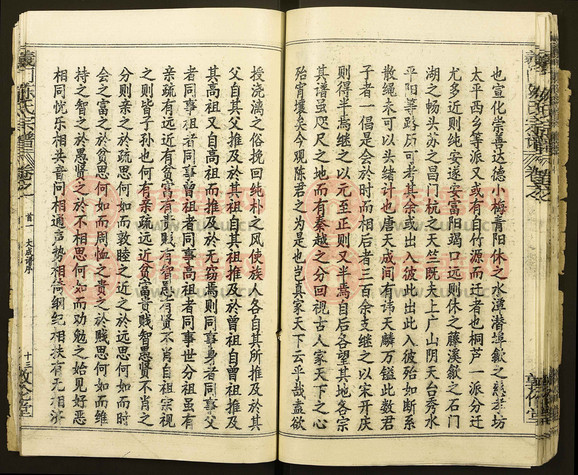 也宣化崇善达德小梅青阳休之水潭潜埠歙之慈孝坊
太平西乡等派又或有由竹源而迁者也桐芦一派分迁
尤多近则纯安遂安富阳竭口远则休之藤溪歙之石门
湖之畅头苏之昌门杭之天竺既夫上广山阴天台秀水
平阳等路历可考其余或出入彼此出此入彼殆如断系
散绳未可以头绪计也唐天成间有讳天麟万镒此数君
子者一倡是会於时而相后者三百余支继之以宋开庆
则得半焉继之以元至正则又半焉自后各望其地各宗
其谱虽咫尺之地而有秦越之分回视古人家天下之心
殆霄壤矣今观陈君之为是也岂真家天下云乎哉盖欲
授浇漓之俗挽回纯朴之风使族人各自其所推及於其
父自其父推及於其祖自其祖推及於曾祖自曾祖推及
其高祖又自高祖而推及於无窃焉则同事身者同事父
者同事祖者同事曾祖者同事高祖者同事世分祖虽有
亲疏有远近有贫富有贵贱有智愚有贤不肖自祖宗视
之则皆子孙也何有亲疏远近贫富贵贱智愚贤不肖之
分则亲之於疏思何如而敦睦之近之於远思何如而时
会之富之於贫思何如而周恤之贵之於贱思何如而维
持之智之於愚贤之於不相思何如而劝勉之始见好恶
相同忧乐相共音问相通声势相倚纲纪相扶有无相济
陈氏宗谱
卷之一
首一
大成谱序
十三
敦伦堂